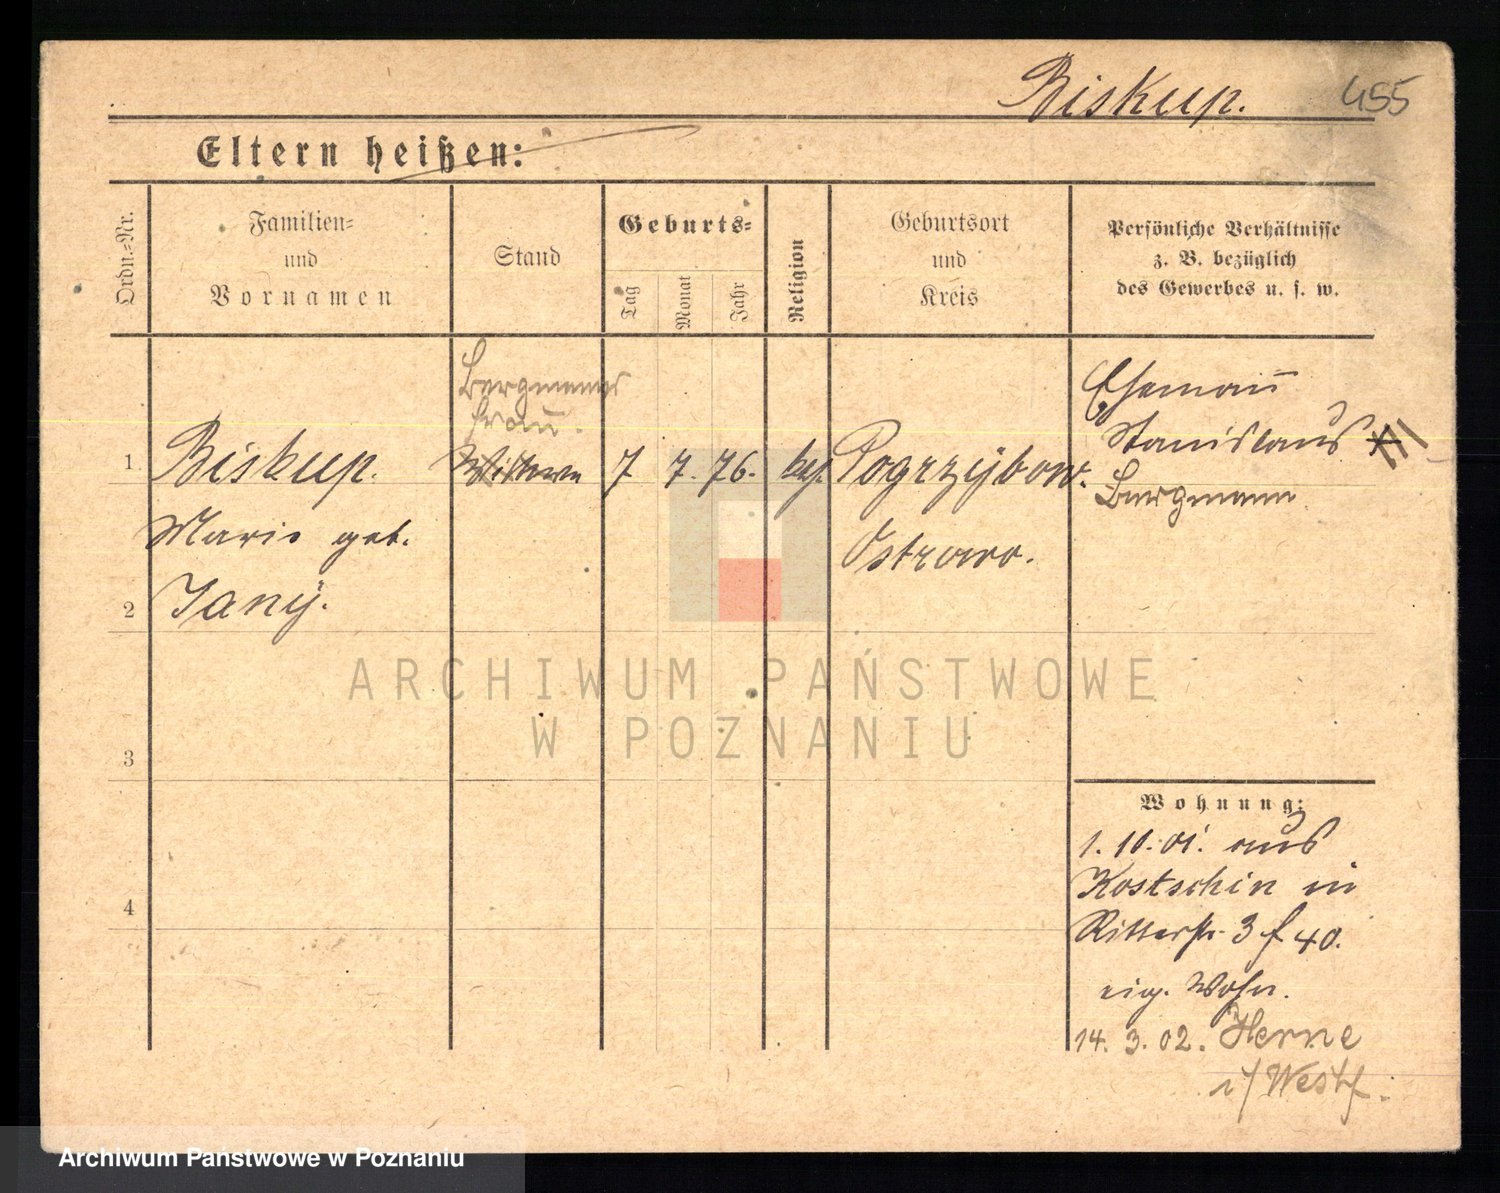 Biskup. 455
Eltern heißen:
Ordn.=Nr.
Familien=
und
Vornamen
Stand
Geburts=
Tag
Monat
Jahr
Religion
Geburtsort
und
Kreis
Persönliche Verhältnisse
z. B. bezüglich
des Gewerbes u. s. w.
Bergmanns
frau.
1 Biskup. Wittwe 7 7. 76. kath. Pogrzybow.
Marie geb. Ostrowo.
2 Jany.
3
4
Ehemann
Stanislaus
Bergmann
Wohnung:
1. 10. 01. aus
Kostschin in
Ritterstr. 3 f 40.
eig. Wohn.
14. 3. 02. Herne
i/Westf.
ARCHIWUM PAŃSTWOWE
W POZNANIU
Archiwum Państwowe w Poznaniu